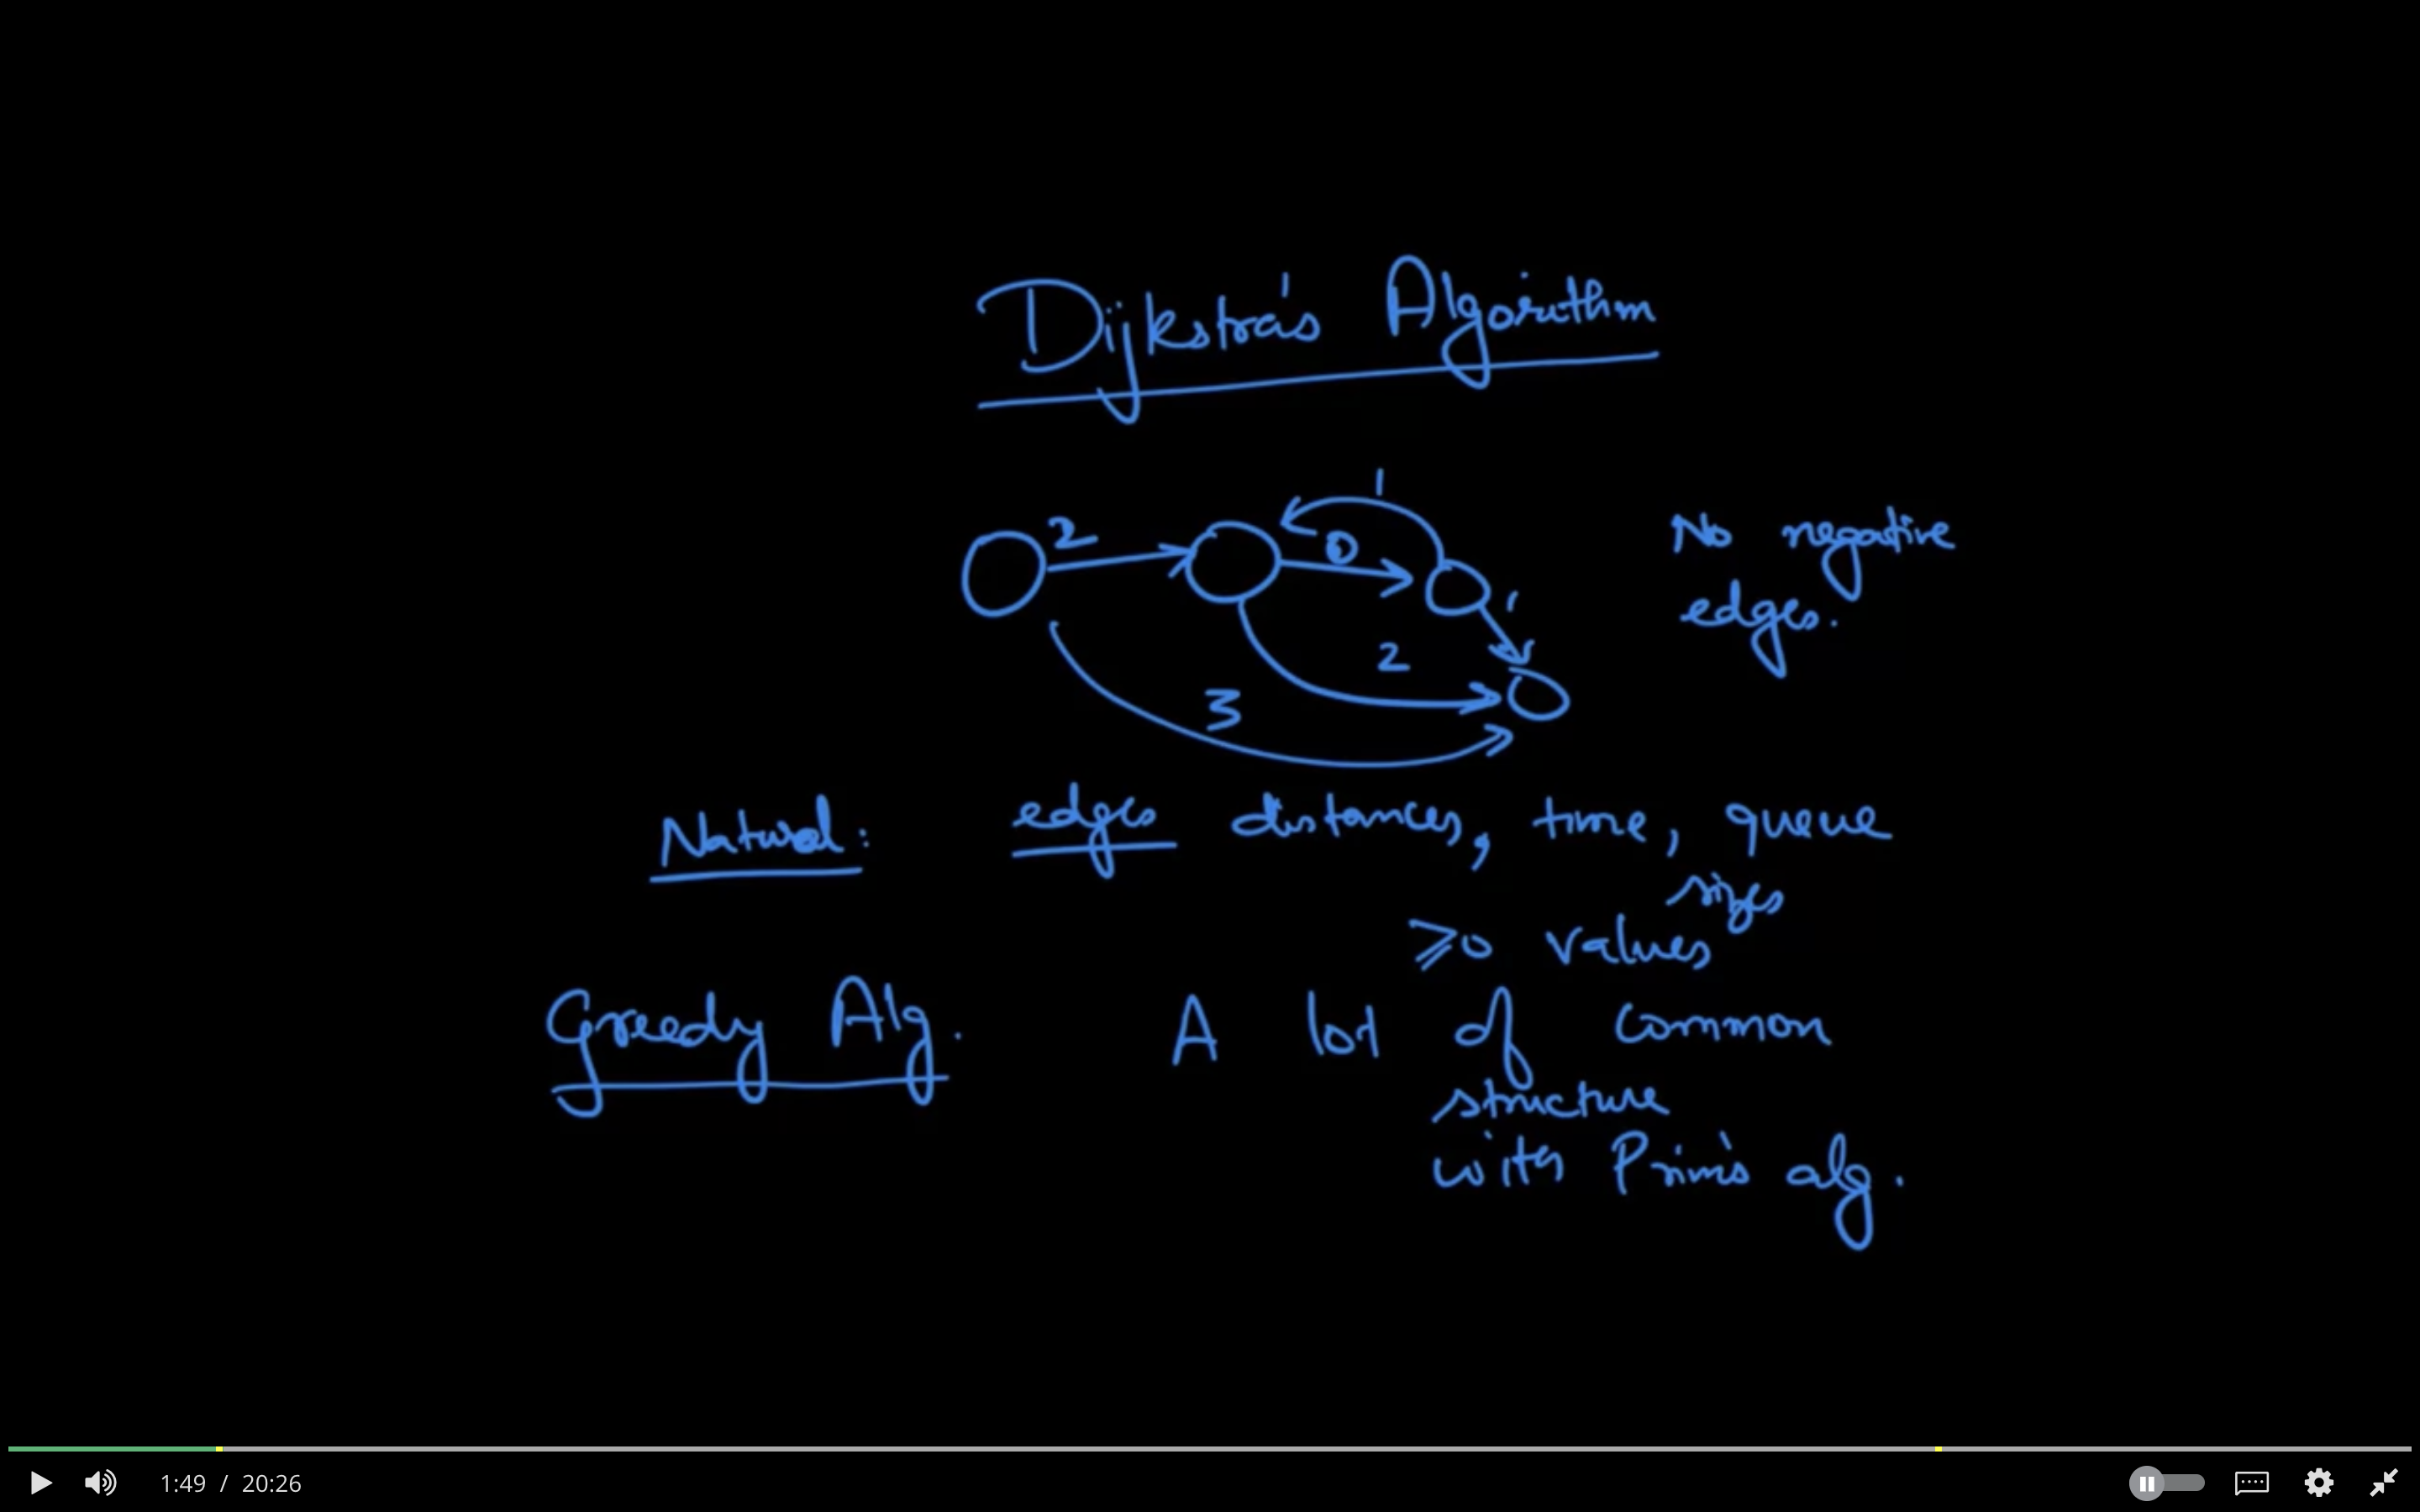 Dijkstra's Algorithm
1
2 0
No negative
1
edges.
2
3
Natural: edges distances, time, queue
sizes
≥0 values
Greedy Alg. A lot of common
structure
with Prim's alg.
1:49 / 20:26